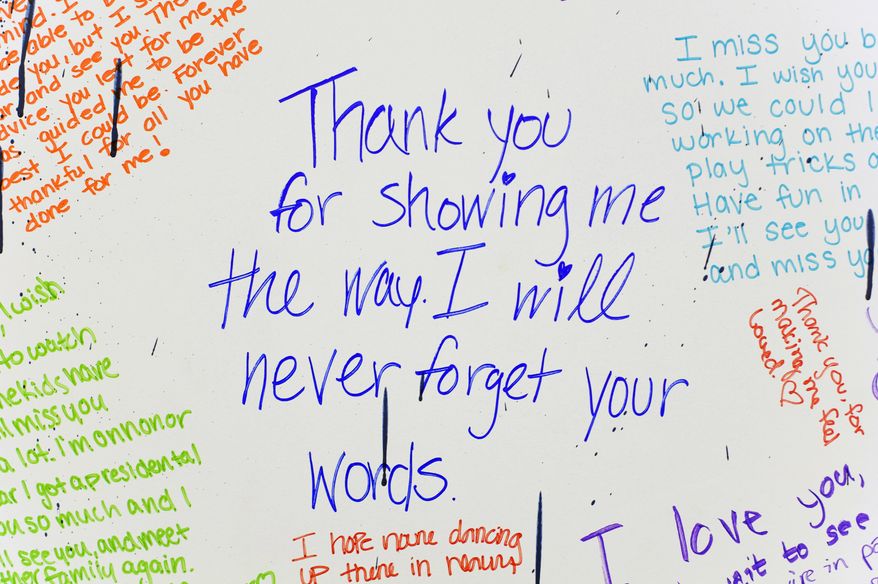 able to b
de you, but I s
and see you. Tho
dvice you left for me
as guided me to be the
best I could be. Forever
thankful for all you have
done for me!
Thank you
for showing me
the way. I will
never forget your
words.
I miss you b
much. I wish you
so we could l
working on the
play tricks a
Have fun in
I'll see you
and miss yo
Thank you, for
making me feel
loved
wish
to watch
he kids have
ll miss you
a lot. I'm on honor
ar I got a presidental
ou so much and I
ll see you, and meet
ther family again.
I hope dancing
up there in
I love you,
it to see
in pa